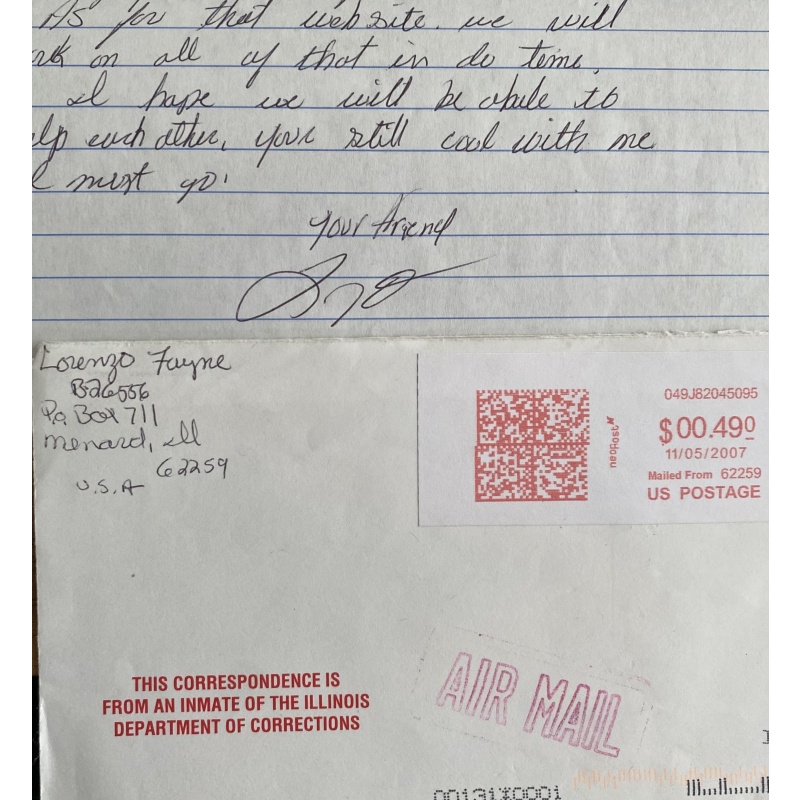 As for that website. we will
rk on all of that in do time.
I hope we will be abule to
elp each other, your still cool with me
I must go!
Your friend
Lorenzo Fayne
B26556
Po Box 711
menard, Ill
62259
U.S.A
neopost
049J82045095
$00.490
11/05/2007
Mailed From 62259
US POSTAGE
THIS CORRESPONDENCE IS
FROM AN INMATE OF THE ILLINOIS
DEPARTMENT OF CORRECTIONS
AIR MAIL